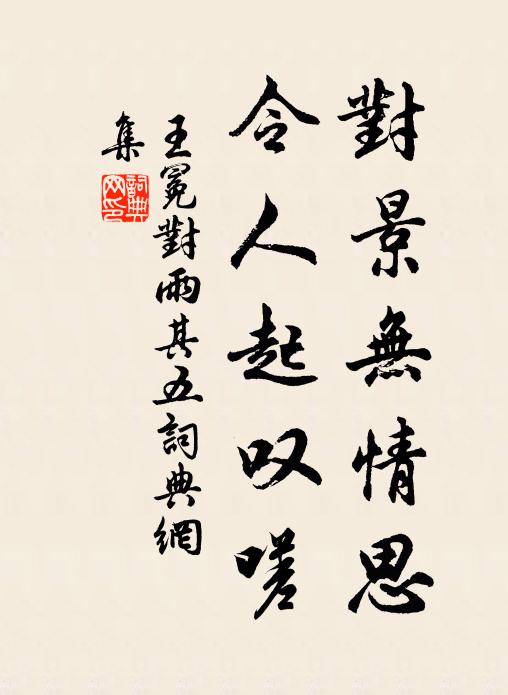 對景無情思
令人起叹嗟
王冕對雨其五詞典網
集
詞典網印